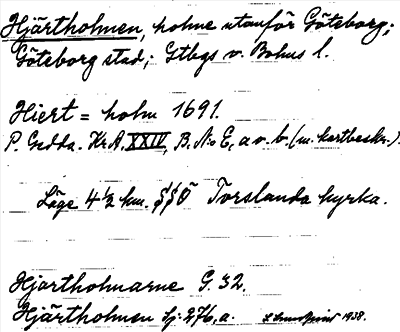 Hjärtholmen, holme utanför Göteborg;
Göteborg stad; Gtbgs o. Bohus l.
Hiert = holm 1691.
P. Gedda. Kr.A. XXIV, B. N:o E, a o. b. (m. kartbeskr.).
Läge 4 1/2 km. SSO Torslanda kyrka.
Hjartholmarne G. 32.
Hjärtholmen Sj. 276, a. 1938.